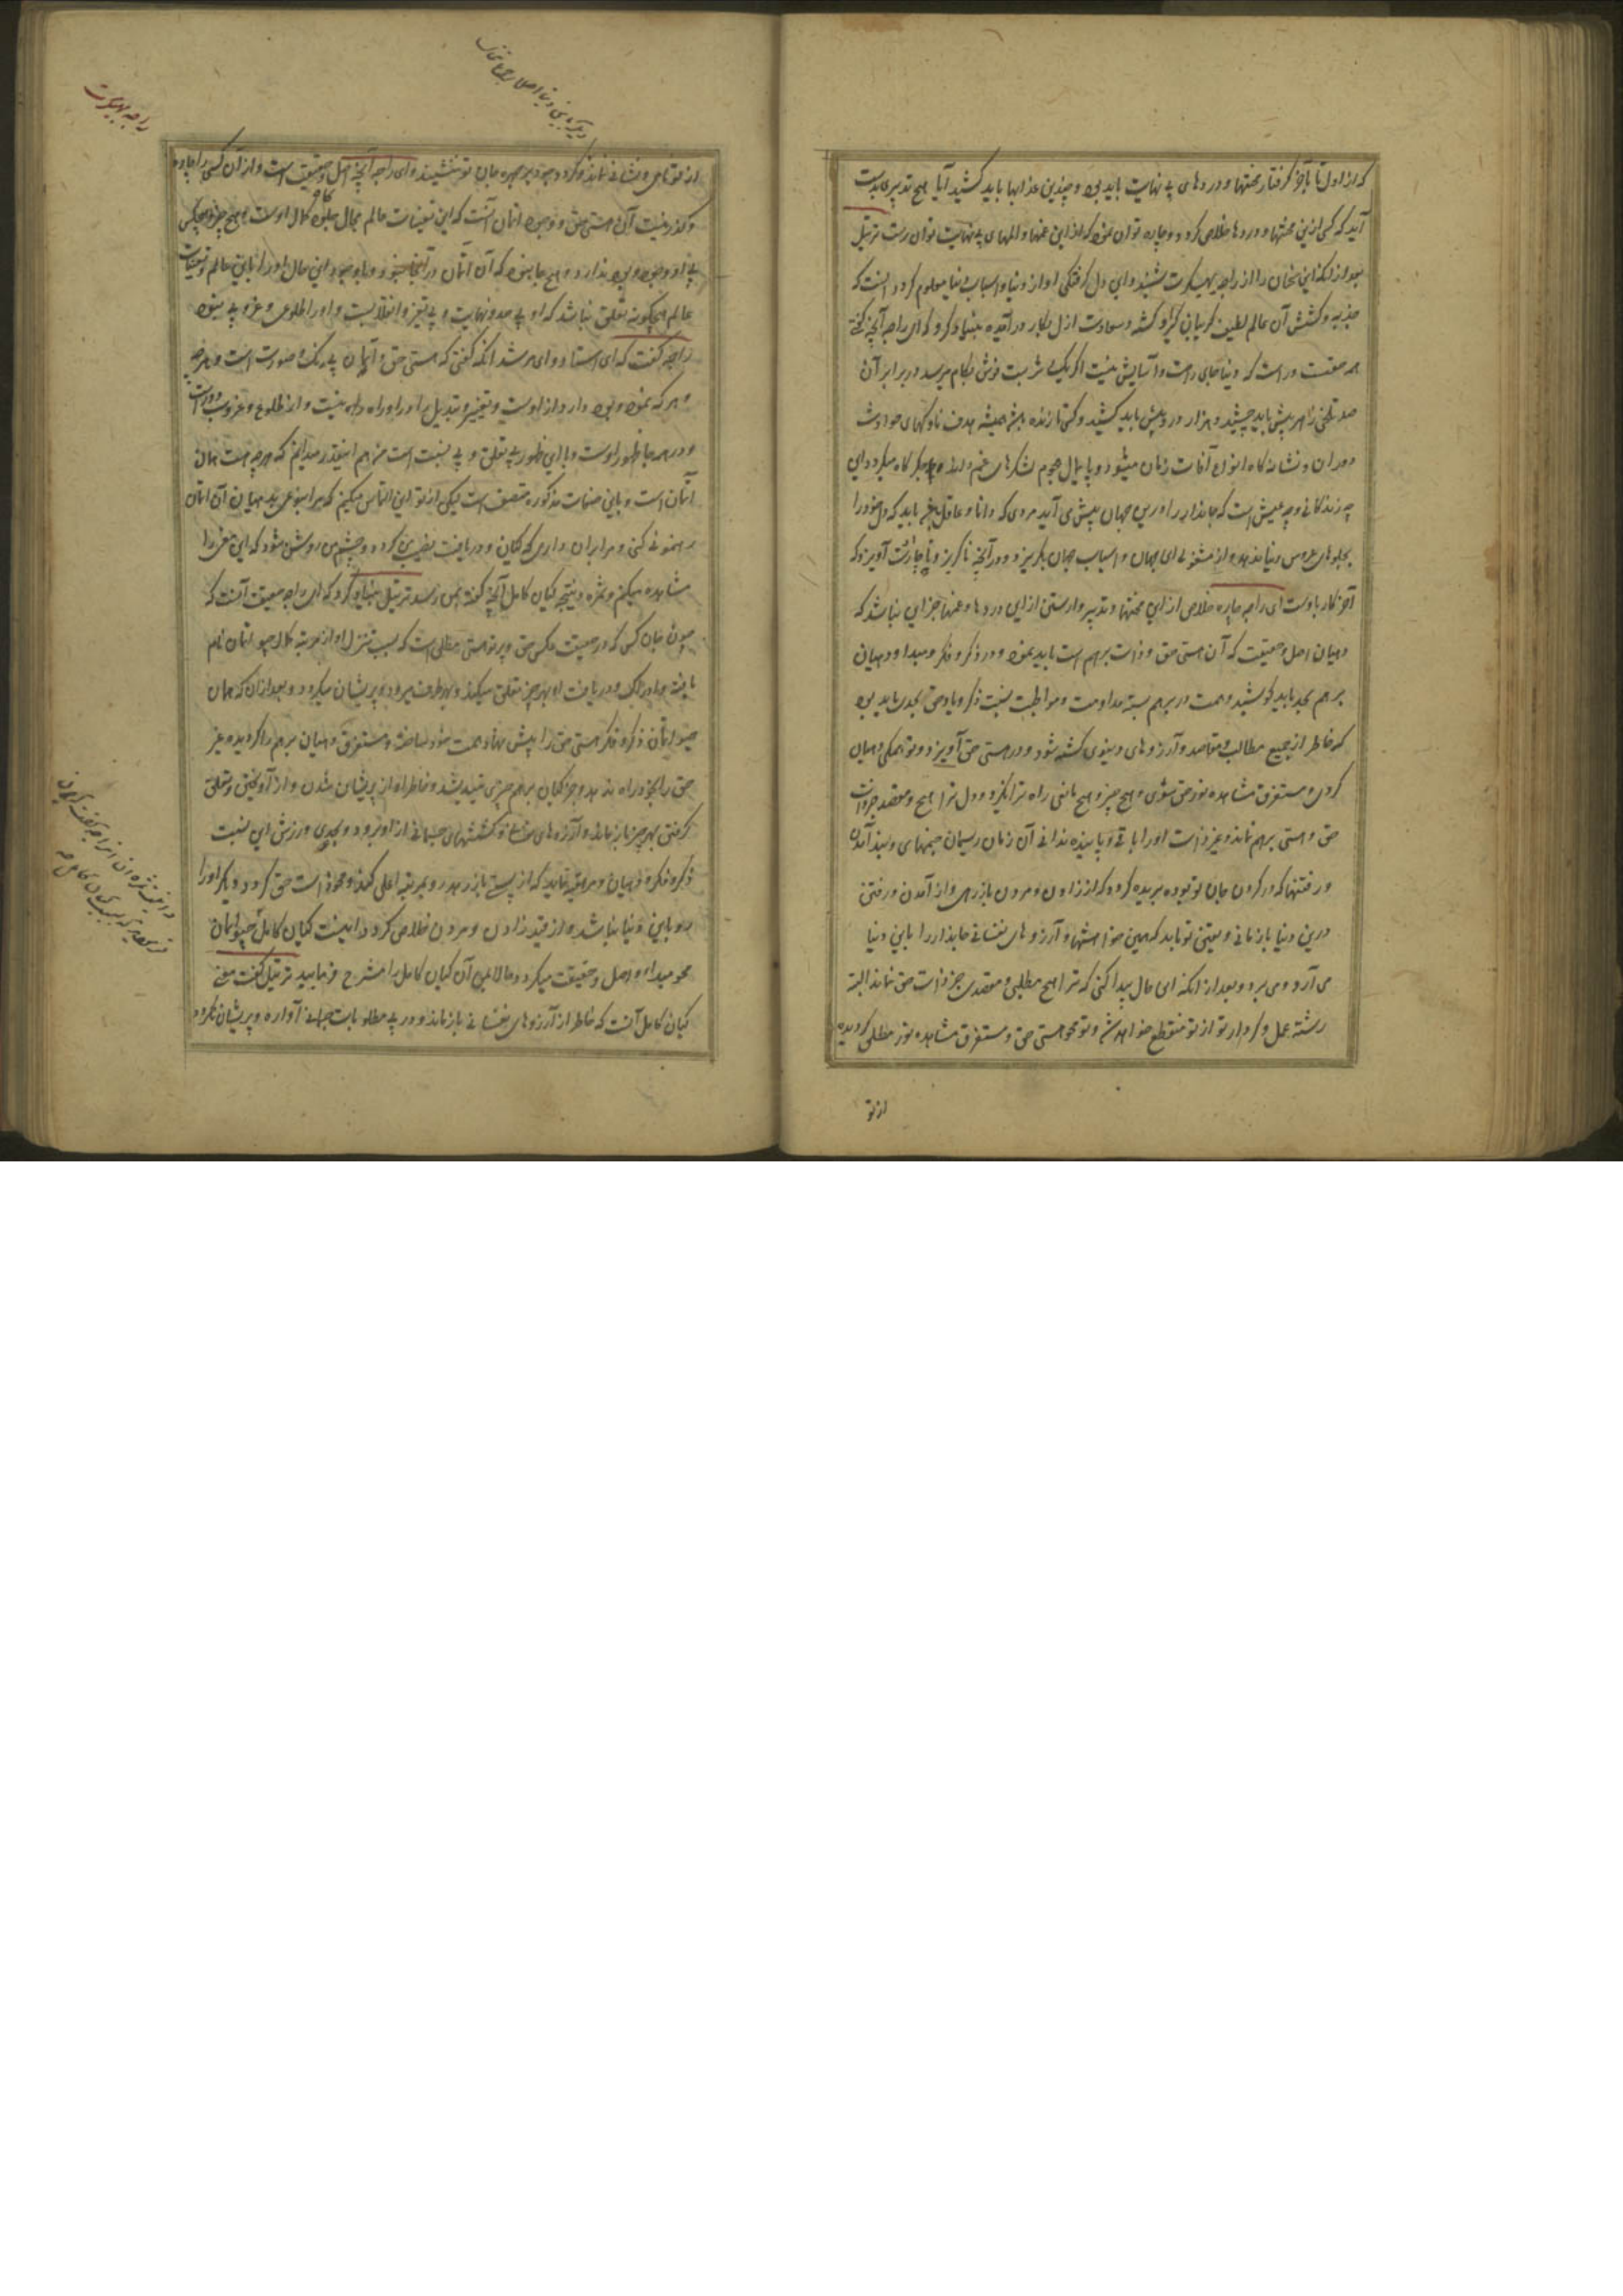 که از اول تا بآخر گرفتار محنتها و دردهای بی نهایت باید بود و چندین عذابها باید کشید آیا هیچ تدبیری بدست
آید که کسی ازین محنتها و دردها خلاص گردد و چاره توان نمود که ازین غمها و المهای بی نهایت توان رست ترتیل
بعد از آنکه این سخنان را از راجه بهیکرت شنید و این دل گرفتگی او از دنیا و اسباب دنیا معلوم کرد دانست که
جذبه و کشش آن عالم لطیف گریبان گیر او گشته و سعادت ازل بکار در آمده بنیاد کرد که ای راجه آنچه گفتی
همه صفت در است که دنیا جای راحت و آسایش نیست اگر یک شربت نوش بکام میرسد در برابر آن
صد تلخی زهر نیش باید چشید و هزار درد بیش باید کشید و کس تا زنده باشد همیشه هدف ناوکهای حوادث
دوران و نشانه گاه انواع آفات زمان میشود و پایمال هجوم لشکرهای غم و اندوه میگردد ای
چه زندگانی و چه عیش است که جاندار را درین جهان پیش می آید مردی که دانا و عاقل باشد باید که دل خود را
بجلوهای عروس دنیا ندهد و از مشغولی این جهان و اسباب جهان بگریزد و در آنچه ناگریز و ناچارست آویزد که
آخر کار باوست ای راجه چاره خلاص ازین محنتها و تدبیر وارستن ازین دردها و غمها جز این نباشد که
دهیان اصل و حقیقت که آن هستی حق و ذات برهم است باید نمود و در ذکر و فکر و مبدا و دهیان
برهم بجد باید کوشید و همت در برهم بسته مداومت و مواظبت نسبت ذکر و یاد حق بجدی باید بود
که خاطر از جمیع مطالب و مقاصد و آرزوهای دنیوی گسسته شود و در هستی حق آویزد و تو بهمگی دهیان
کردن مستغرق مشاهده نور حق شوی و هیچ چیز و هیچ مانعی راه ترا نگیرد و دل ترا هیچ مقصد جز ذات
حق و هستی برهم نماند و غیر ذات او را باقی و پاینده ندانی آن زمان ریسمان جنمهای و نیز آمدن
و رفتنها که در گردن جان تو بوده بریده گردد که از زادن و مردن باز رهی و از آمدن و رفتن
درین دنیا باز مانی و یقین تو باید که همین خواهشها و آرزوهای نفسانی جاندار را باین دنیا
می آرد و می برد و بعد از آنکه این حال پیدا کنی که ترا هیچ مطلبی و مقصدی جز ذات حق نماند البته
رشته عمل و کردار تو از تو منقطع خواهد شد و تو محو هستی حق و مستغرق مشاهده نور مطلق گردیده
از تو
راجه بهیکرت
از تو نامی و نشانی نماند و گرد وجود بر چهره جان تو ننشیند و ای راجه آنچه اصل و حقیقت است و از آن کسی را چاره
و گذر نیست آن هستی حق و وجود اتمان است که این تعینات عالم جمال جلوه گاه کمال اوست و هیچ چیز و هیچکس
بی او وجود و بود ندارد و هیچ جا نبود که آن اتمان در آنجا نبود و با وجود این حال او را باین عالم و تعینات
عالم هیچگونه تعلقی نباشد که او بی حد و نهایت و بی تغیر و انقلابست و او را طلوعی و غروبی نبود
راجه گفت که ای استاد و ای مرشد آنکه گفتی که هستی حق و اتمان بی رنگ و صورت است و هر چه
و هر که نمود و بود دارد از اوست و تغییر و تبدیل را در او راه نیست و از طلوع و غروب دور است
و در همه جا ظهور اوست و با این ظهور بی تعلق و بی نسبت است من هم اینقدر میدانم که هر چه هست همان
اتمان است و باین صفات مذکوره متصف است لیکن از تو این التماس میکنم که مرا بنوعی بدهیان آن اتمان
رهنمونی کنی و مرا بران داری که گیان و دریافت نصیب من گردد و بچشم من روشن شود که این معنی را
مشاهده میکنم و ثمره و نتیجه گیان کامل آنچه گفته بمن رسد ترتیل بنیاد کرد که ای راجه حقیقت آنست که
چون جان کسی که در حقیقت عکس حق و پرتو هستی مطلق است که بسبب تنزل او از مرتبه کمال جیو اتمان نام
یافته و ادراک و دریافت او بهر چیز تعلق میگیرد و بهر طرف میرود و پریشان میگردد و بعد از آن که همان
جیو اتمان ذکر و فکر هستی حق را پیش نهاد همت خود ساخته و مستغرق دهیان برهم را گردیده غیر
حق را بخود راه ندهد و جز گیان برهم چیزی نیندیشد و خاطر او از پریشان شدن و از آویختن و تعلق
گرفتن بهر چیز باز ماند و آرزوهای نفسانی و کششهای جسمانی از او برود و بجدی ورزش این نسبت
ذکر و فکر و دهیان و مراقبه نماید که از پستی باز رهد و بمرتبه اعلی گراید و محو ذات حق گردد دیگر او را
رو باین دنیا نباشد و از قید زادن و مردن خلاص گردد اینست گیان کامل جیو اتمان
محو مبداء و اصل و حقیقت میگردد حالا بمن آن گیان کامل را مشرح فرمایید ترتیل گفت معنی
گیان کامل آنست که خاطر از آرزوهای نفسانی باز ماند و در پی مطلوبات جهانی آواره و پریشان نگردد